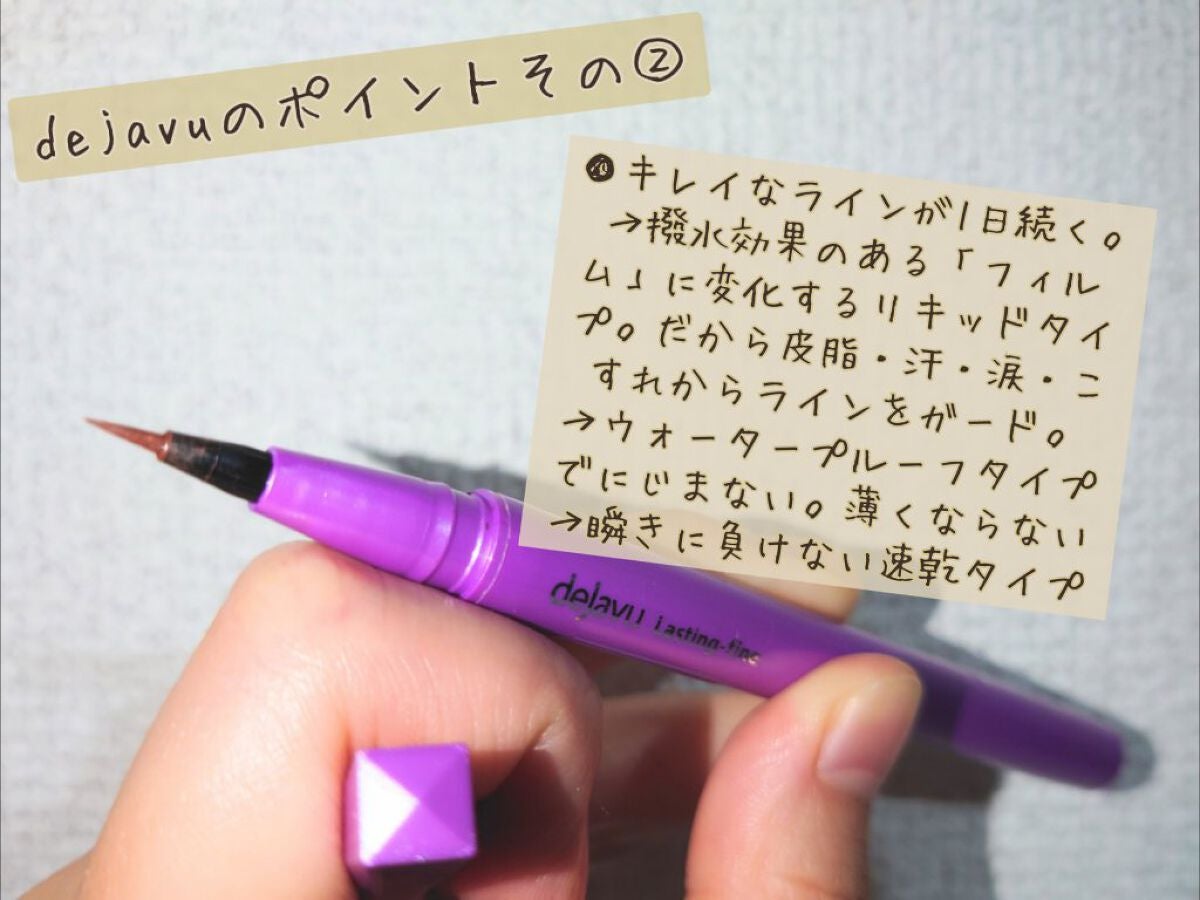 dejavuのポイントその②
❿キレイなラインが1日続く。
→撥水効果のある「フィル
ム」に変化するリキッドタイ
プ。だから皮脂・汗・涙・こ
すれからラインをガード。
→ウォータープルーフタイプ
でにじまない。薄くならない
→瞬きに負けない速乾タイプ
dejavu Lasting-fine